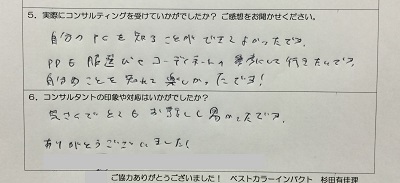 5. 実際にコンサルティングを受けていかがでしたか？ ご感想をお聞かせください。
自分のPCを知ることができてよかったです。
PDも服選びやコーディネートの参考にして行きたいです。
自分のことを知れて楽しかったです！
6. コンサルタントの印象や対応はいかがでしたか？
気さくでとてもお話しし易かったです。
ありがとうございました！
ご協力ありがとうございました！ ベストカラーインパクト 杉田有佳理